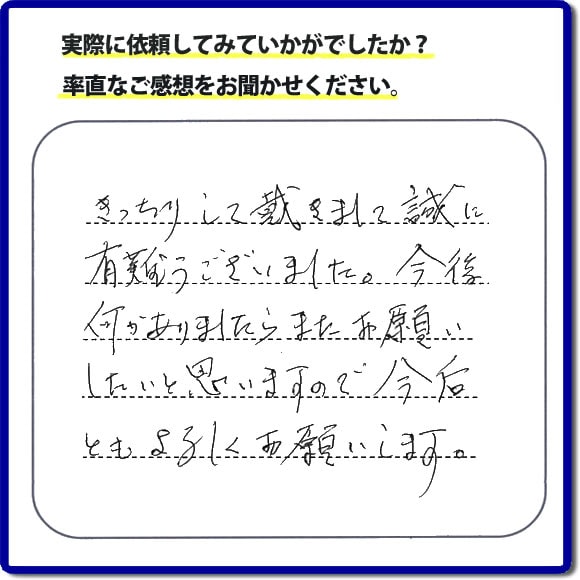 実際に依頼してみていかがでしたか？
率直なご感想をお聞かせください。
きっちりして戴きまして誠に
有難うございました。今後
何かありましたらまたお願い
したいと思いますので今后
ともよろしくお願いします。